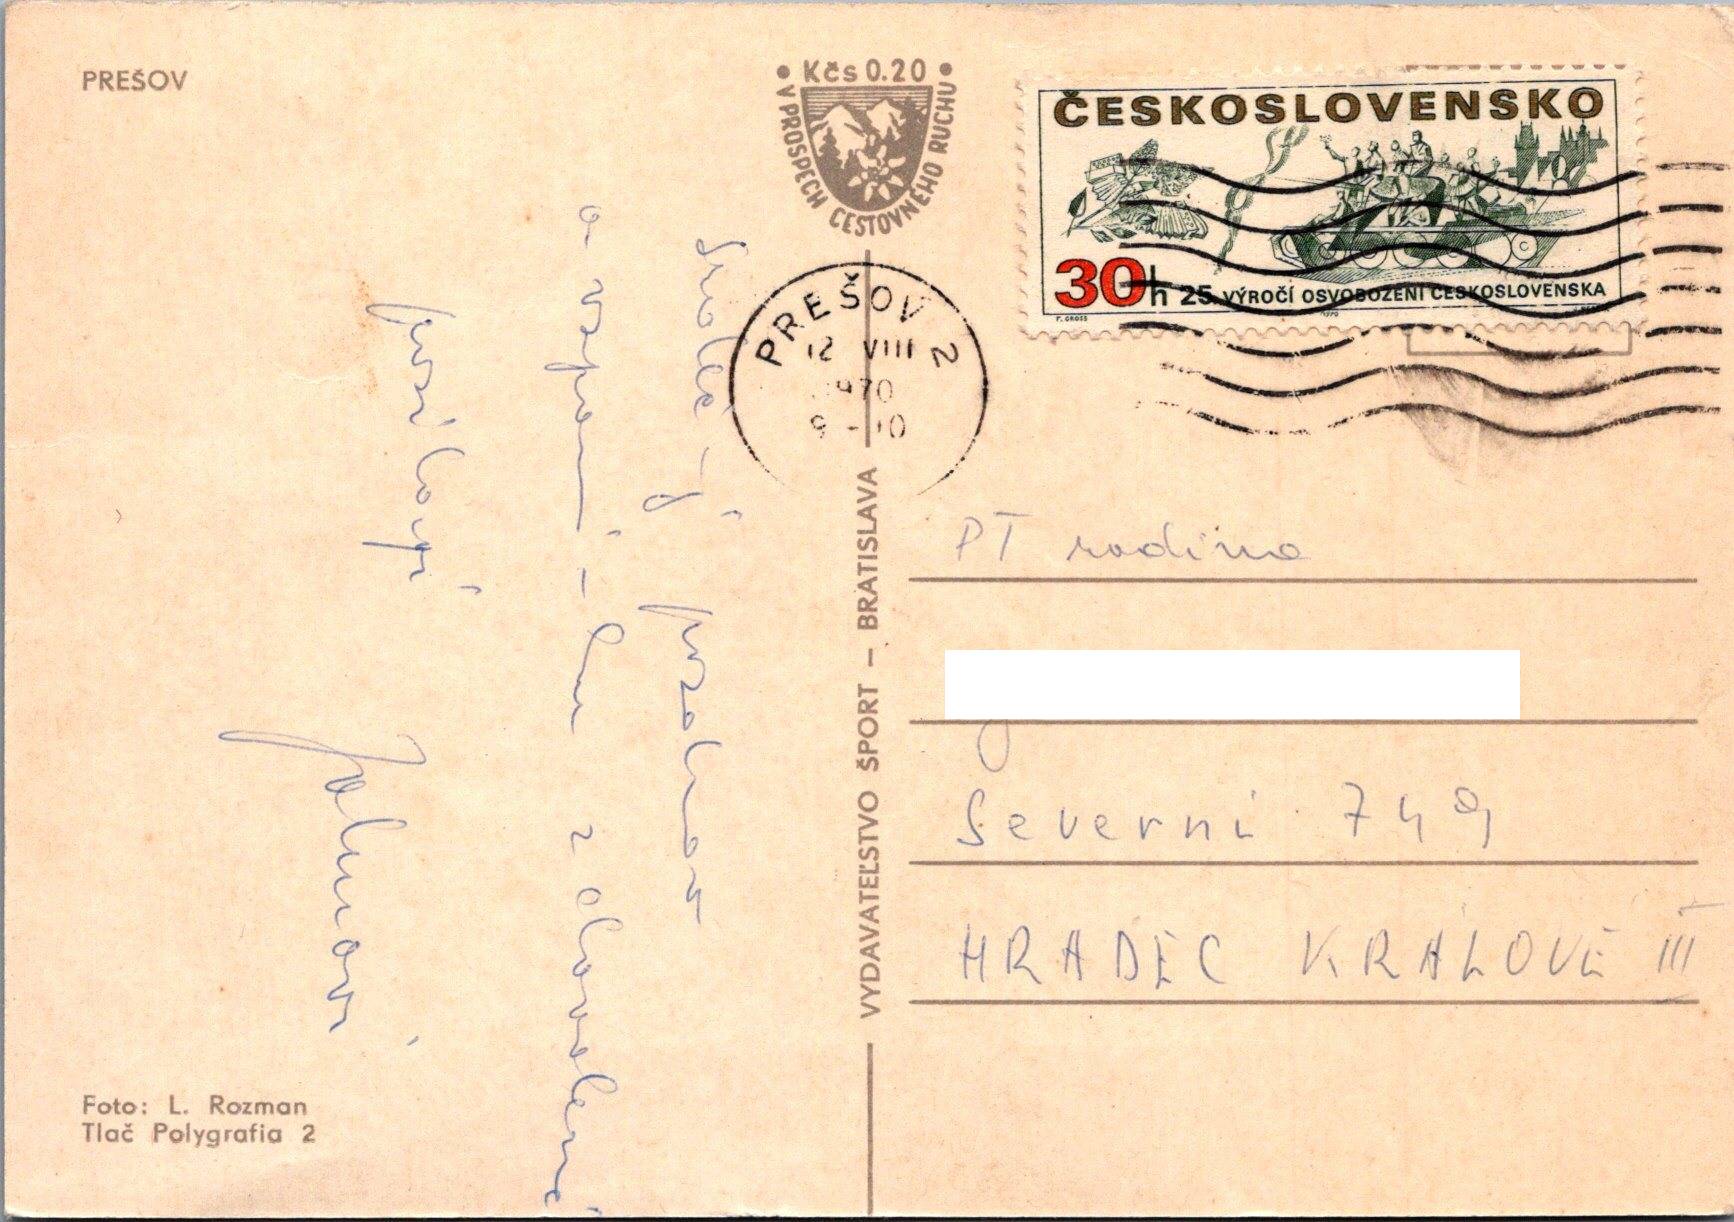 PREŠOV
Srdečný pozdrav
a vzpomínku z dovolené
posílají
• Kčs 0.20 •
V PROSPECH CESTOVNÉHO RUCHU
PREŠOV 2
12 VIII
1970
9 - 10
VYDAVATEĽSTVO ŠPORT – BRATISLAVA
ČESKOSLOVENSKO
30h 25. VÝROČÍ OSVOBOZENÍ ČESKOSLOVENSKA
1970
PT rodina
Severní 749
HRADEC KRÁLOVÉ III
Foto: L. Rozman
Tlač Polygrafia 2